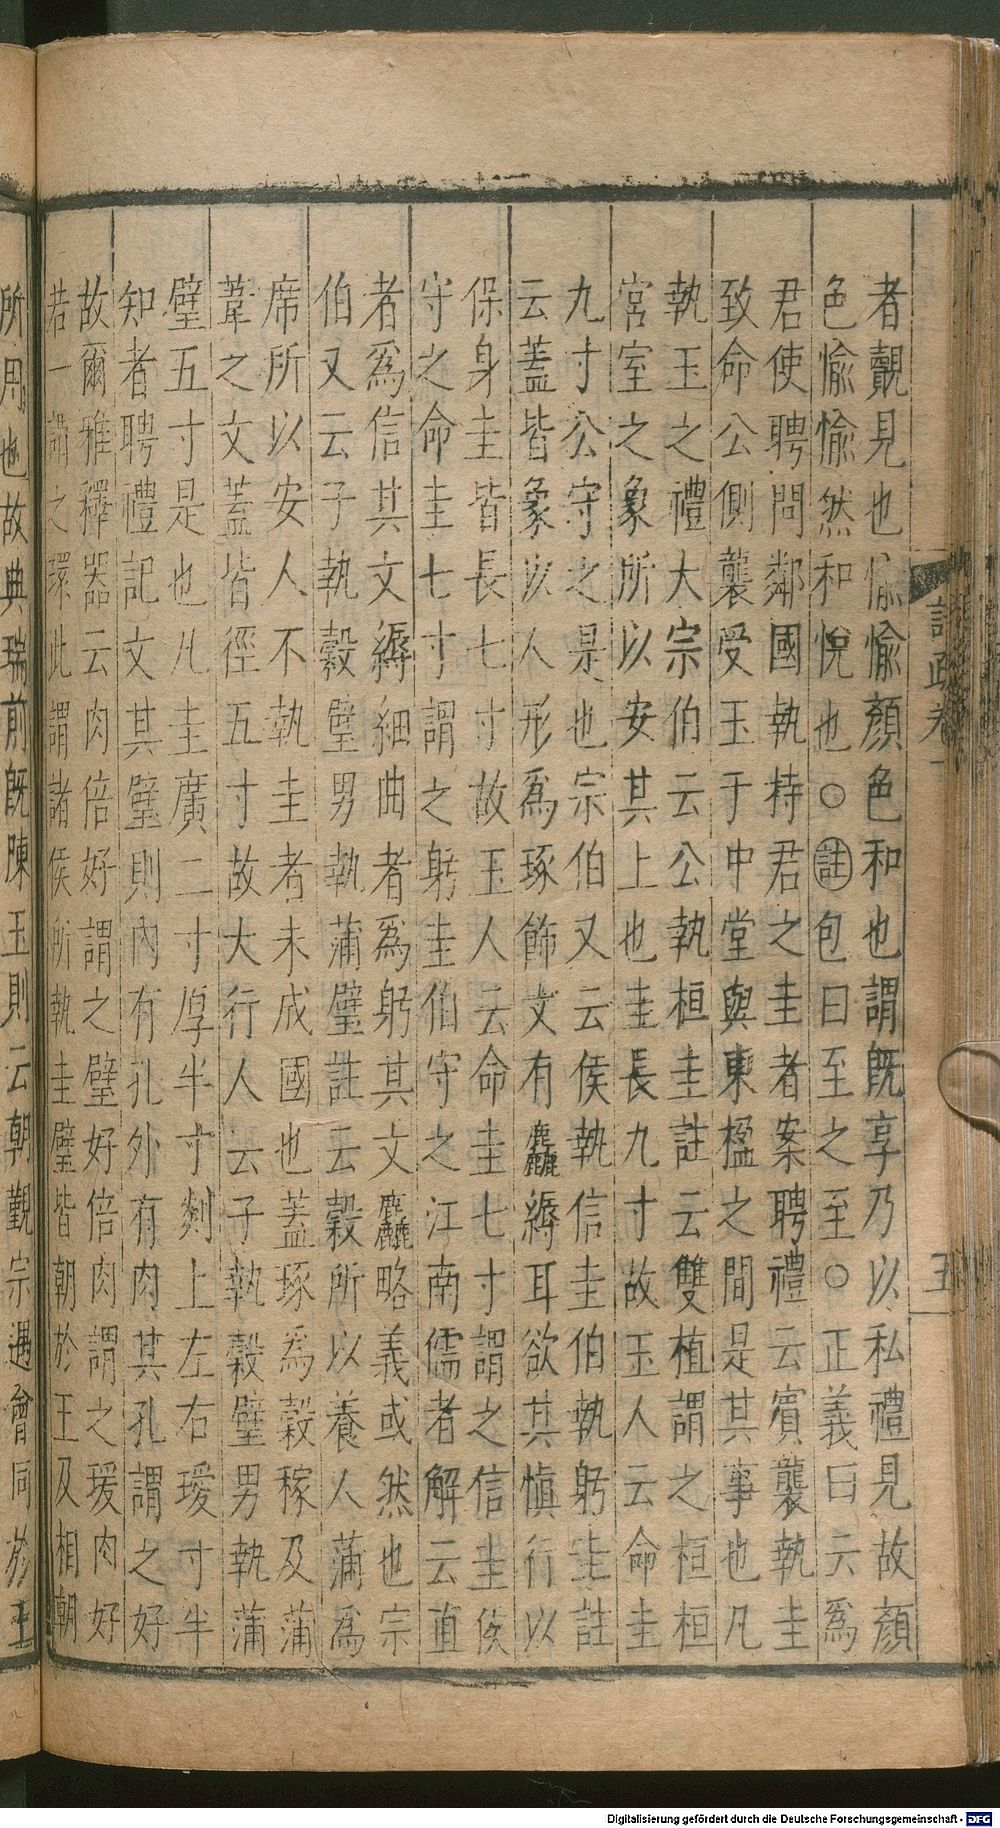 者覿見也愉愉顏色和也謂既享乃以私禮見故顏
色愉愉然和悅也○註包曰至之至○正義曰云為
君使聘問鄰國執持君之圭者案聘禮云賓襲執圭
致命公側襲受玉于中堂與東楹之間是其事也凡
執玉之禮大宗伯云公執桓圭註云雙植謂之桓桓
宮室之象所以安其上也圭長九寸故玉人云命圭
九寸公守之是也宗伯又云侯執信圭伯執躬圭註
云蓋皆象以人形為琢飾文有麤縟耳欲其慎行以
保身圭皆長七寸故玉人云命圭七寸謂之信圭侯
守之命圭七寸謂之躬圭伯守之江南儒者解云直
者為信其文縟細曲者為躬其文麤略義或然也宗
伯又云子執穀璧男執蒲璧註云穀所以養人蒲為
席所以安人不執圭者未成國也蓋琢為穀稼及蒲
葦之文蓋皆徑五寸故大行人云子執穀璧男執蒲
璧五寸是也凡圭廣二寸厚半寸剡上左右瑷寸半
知者聘禮記文其璧則內有孔外有肉其孔謂之好
故爾雅釋器云肉倍好謂之璧好倍肉謂之瑗肉好
若一謂之環此謂諸侯所執圭璧皆朝於王及相朝
所用也故典瑞前既陳玉則云朝覲宗遇會同於王
五
Digitalisierung gefördert durch die Deutsche Forschungsgemeinschaft - DFG